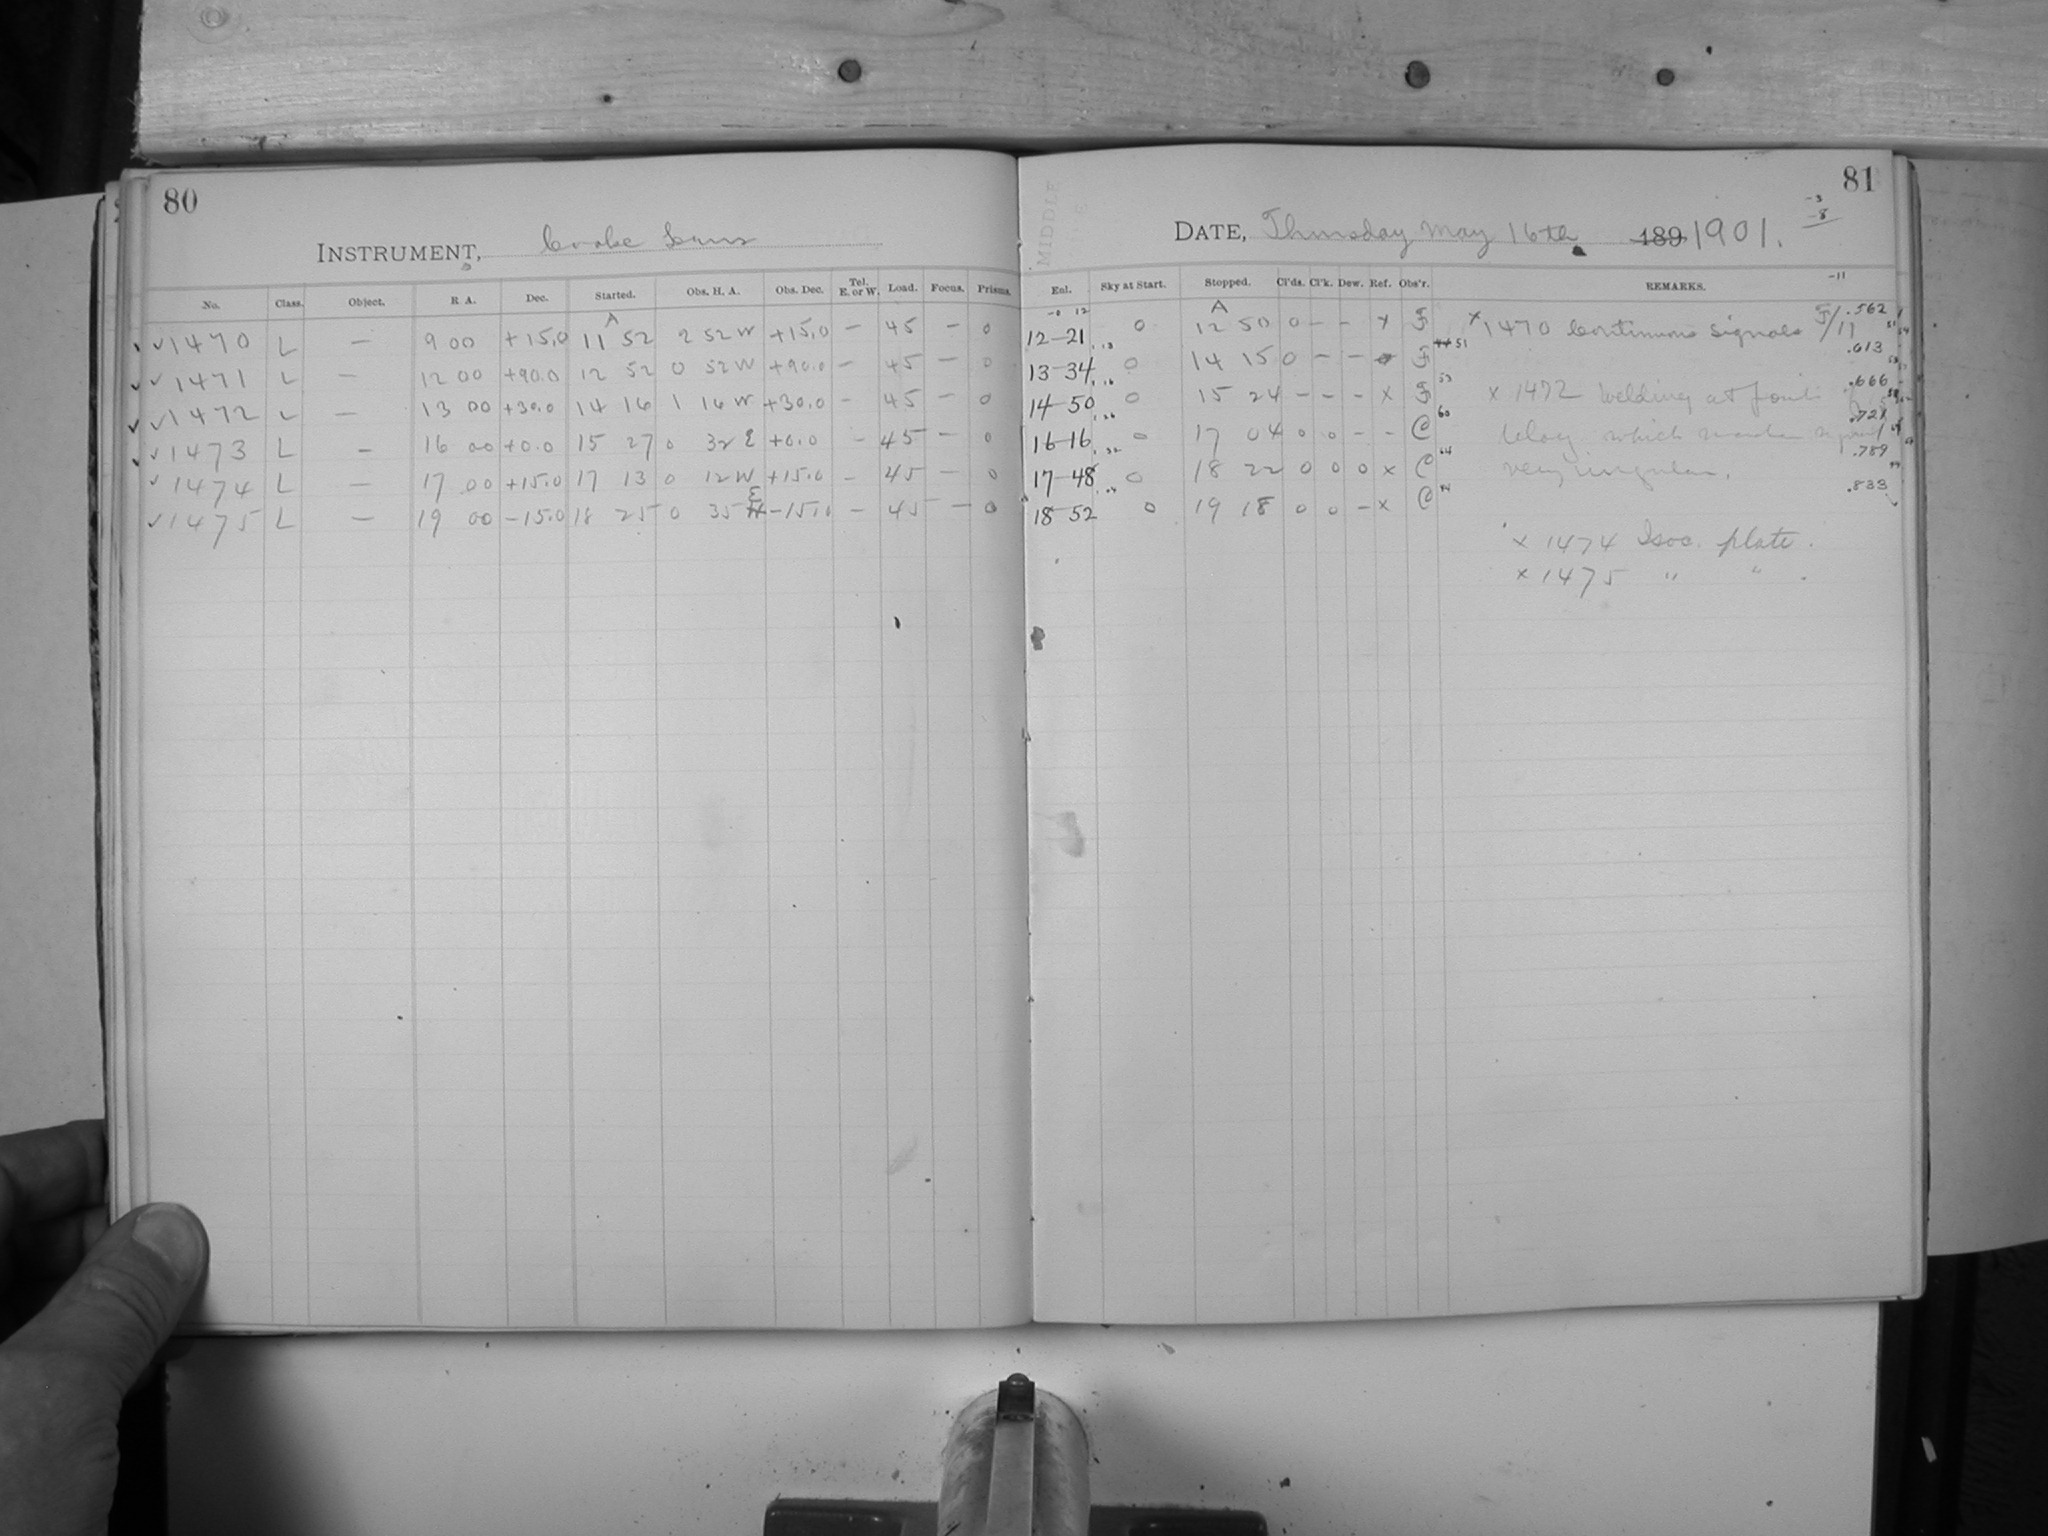 80
INSTRUMENT, Cooke Lens
No. Class. Object. R A. Dec. Started. Obs. H. A. Obs. Dec. Tel. E. or W. Load. Focus. Prisms.
A
✓✓1470 L — 9 00 +15.0 11 52 2 52 W +15.0 — 45 — 0
✓✓1471 L — 12 00 +90.0 12 52 0 52 W +90.0 — 45 — 0
✓✓1472 L — 13 00 +30.0 14 16 1 16 W +30.0 — 45 — 0
✓✓1473 L — 16 00 +0.0 15 27 0 32 E +0.0 — 45 — 0
✓1474 L — 17 00 +15.0 17 13 0 12 W +15.0 — 45 — 0
✓1475 L — 19 00 -15.0 18 25 0 35 E -15.0 — 45 — 0
MIDDLE
81
-3
-8
DATE, Thursday May 16th 189 1901.
-11
Eol. Sky at Start. Stopped. Cl'ds. Cl'k. Dew. Ref. Obs'r. REMARKS.
A
12-21 0 12 50 0 — — x F x 1470 Continuous signals F/17 .562
13-34 0 14 15 0 — — F 51 .613
14-50 0 15 24 — — — x F 53 x 1472 Welding at .666
16-16 0 17 04 0 0 — — C 60 which .721
17-48 0 18 22 0 0 0 x C 64 very irregular. .789
18-52 0 19 18 0 0 — x C 44 .833
x 1474 Isoc. plate.
x 1475 " " .